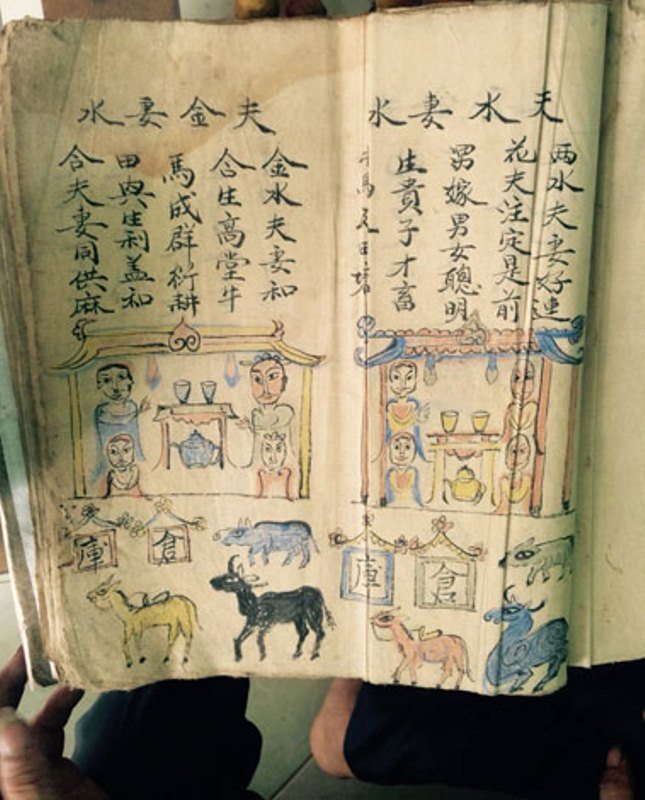 天水妻水
两水夫妻好連
花夫注定是前
男嫁男女聰明
生貴子才畜
牛馬田
倉
庫
夫金妻水
金水夫妻和
合生高堂牛
馬成群衍耕
田與生利盖和
合夫妻同供麻
倉
庫